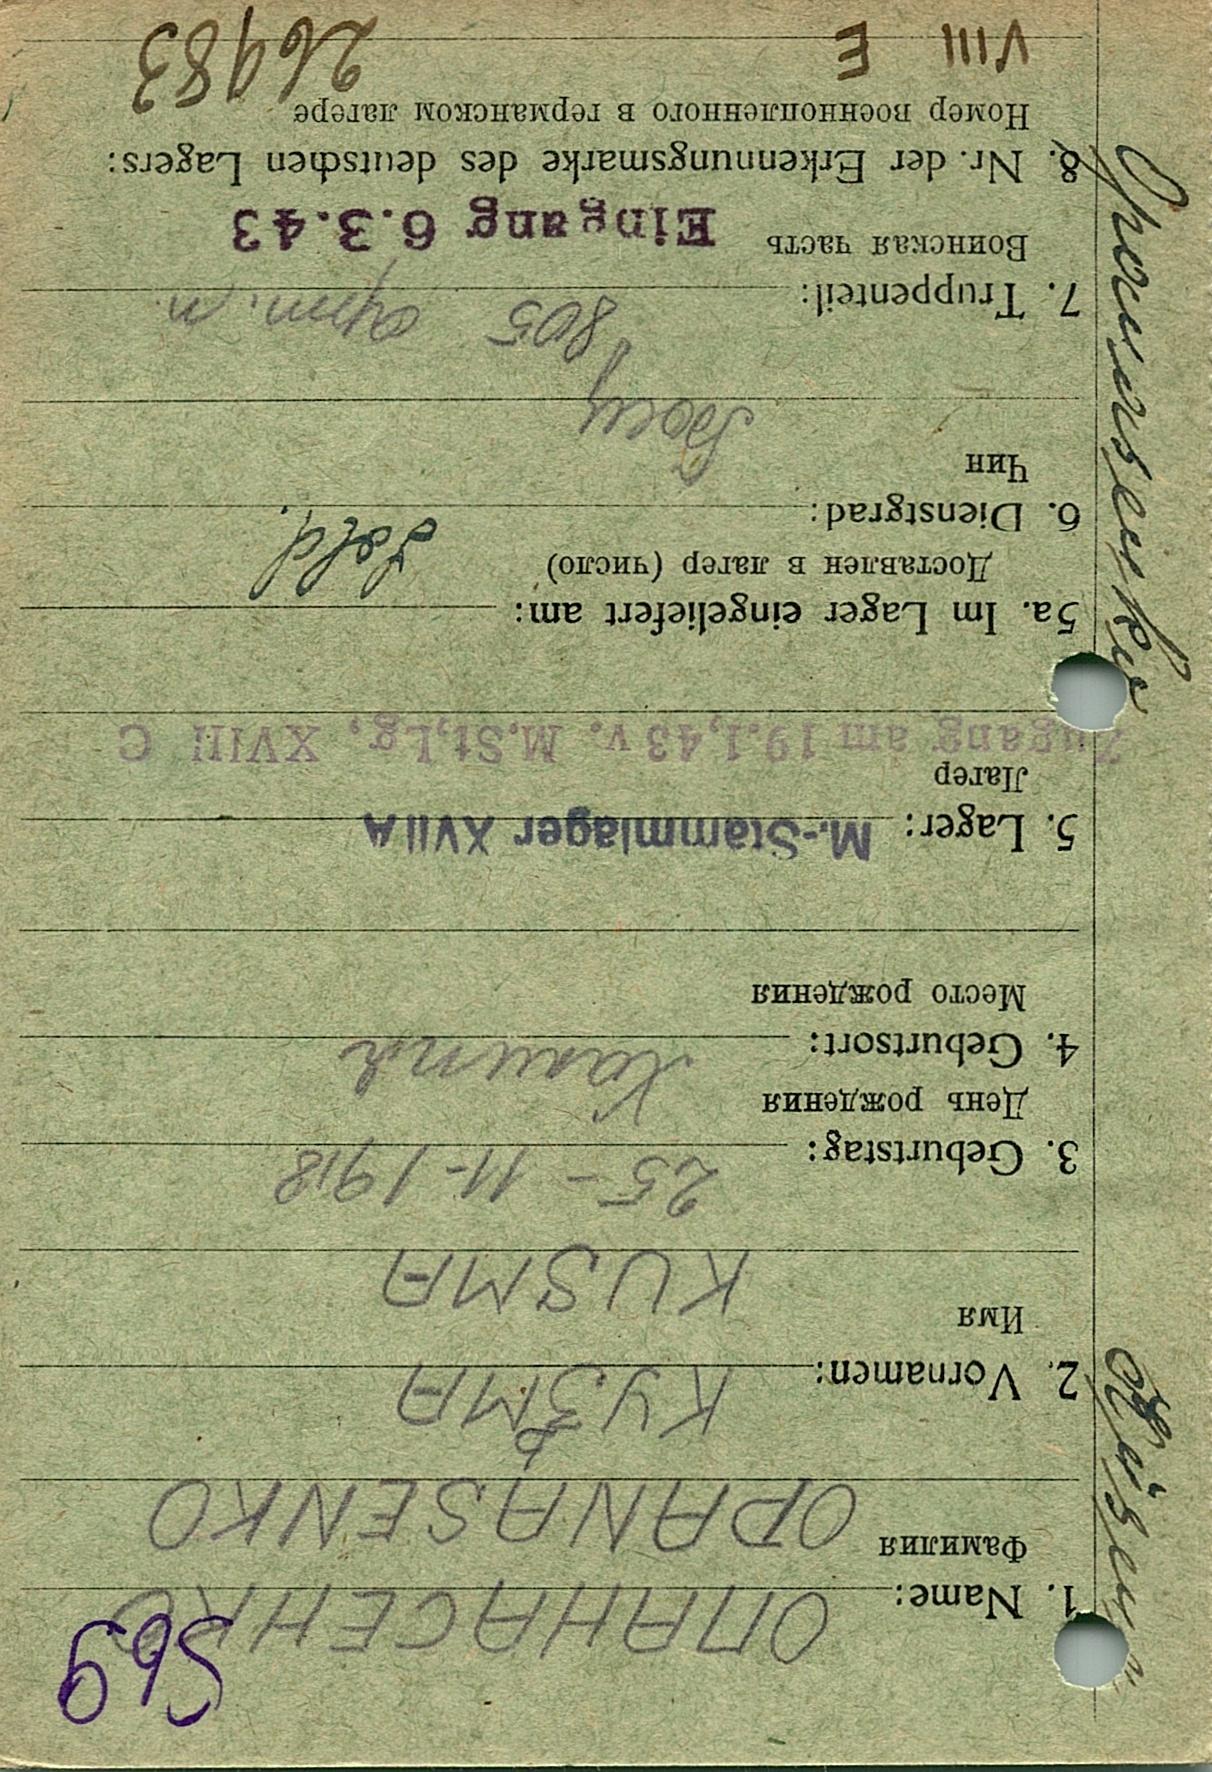 569
1. Name: ОПАНАСЕНКО
Фамилия OPANASENKO
2. Vornamen: КУЗЬМА
Имя KUSMA
3. Geburtstag: 25-11-1918
День рождения
4. Geburtsort:
Место рождения
5. Lager: M.-Stammlager XVII A
Лагерь
Zugang am 19.1.43 v. M.St.Lg. XVIII C
5a. Im Lager eingeliefert am:
Доставлен в лагер (число)
6. Dienstgrad: Sold.
Чин
7. Truppenteil: 805
Воинская часть Eingang 6.3.43
8. Nr. der Erkennungsmarke des deutschen Lagers:
Номер военнопленного в германском лагере
VIII E 26983